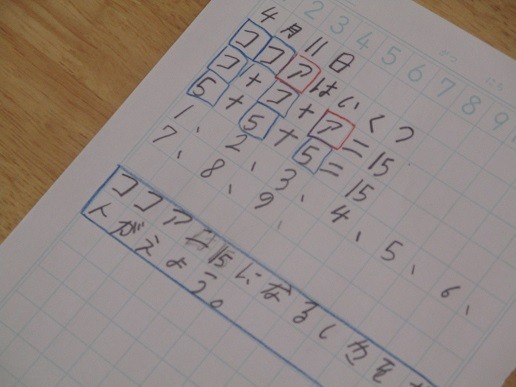 1 2 3 4 5 6 7 8 9
4月11日
ココアはいくつ
コ+コ+ア=15
5+5+5=15
1、2、3、4、5、6、
7、8、9、
ココア=15になるしきを
人がえよう。